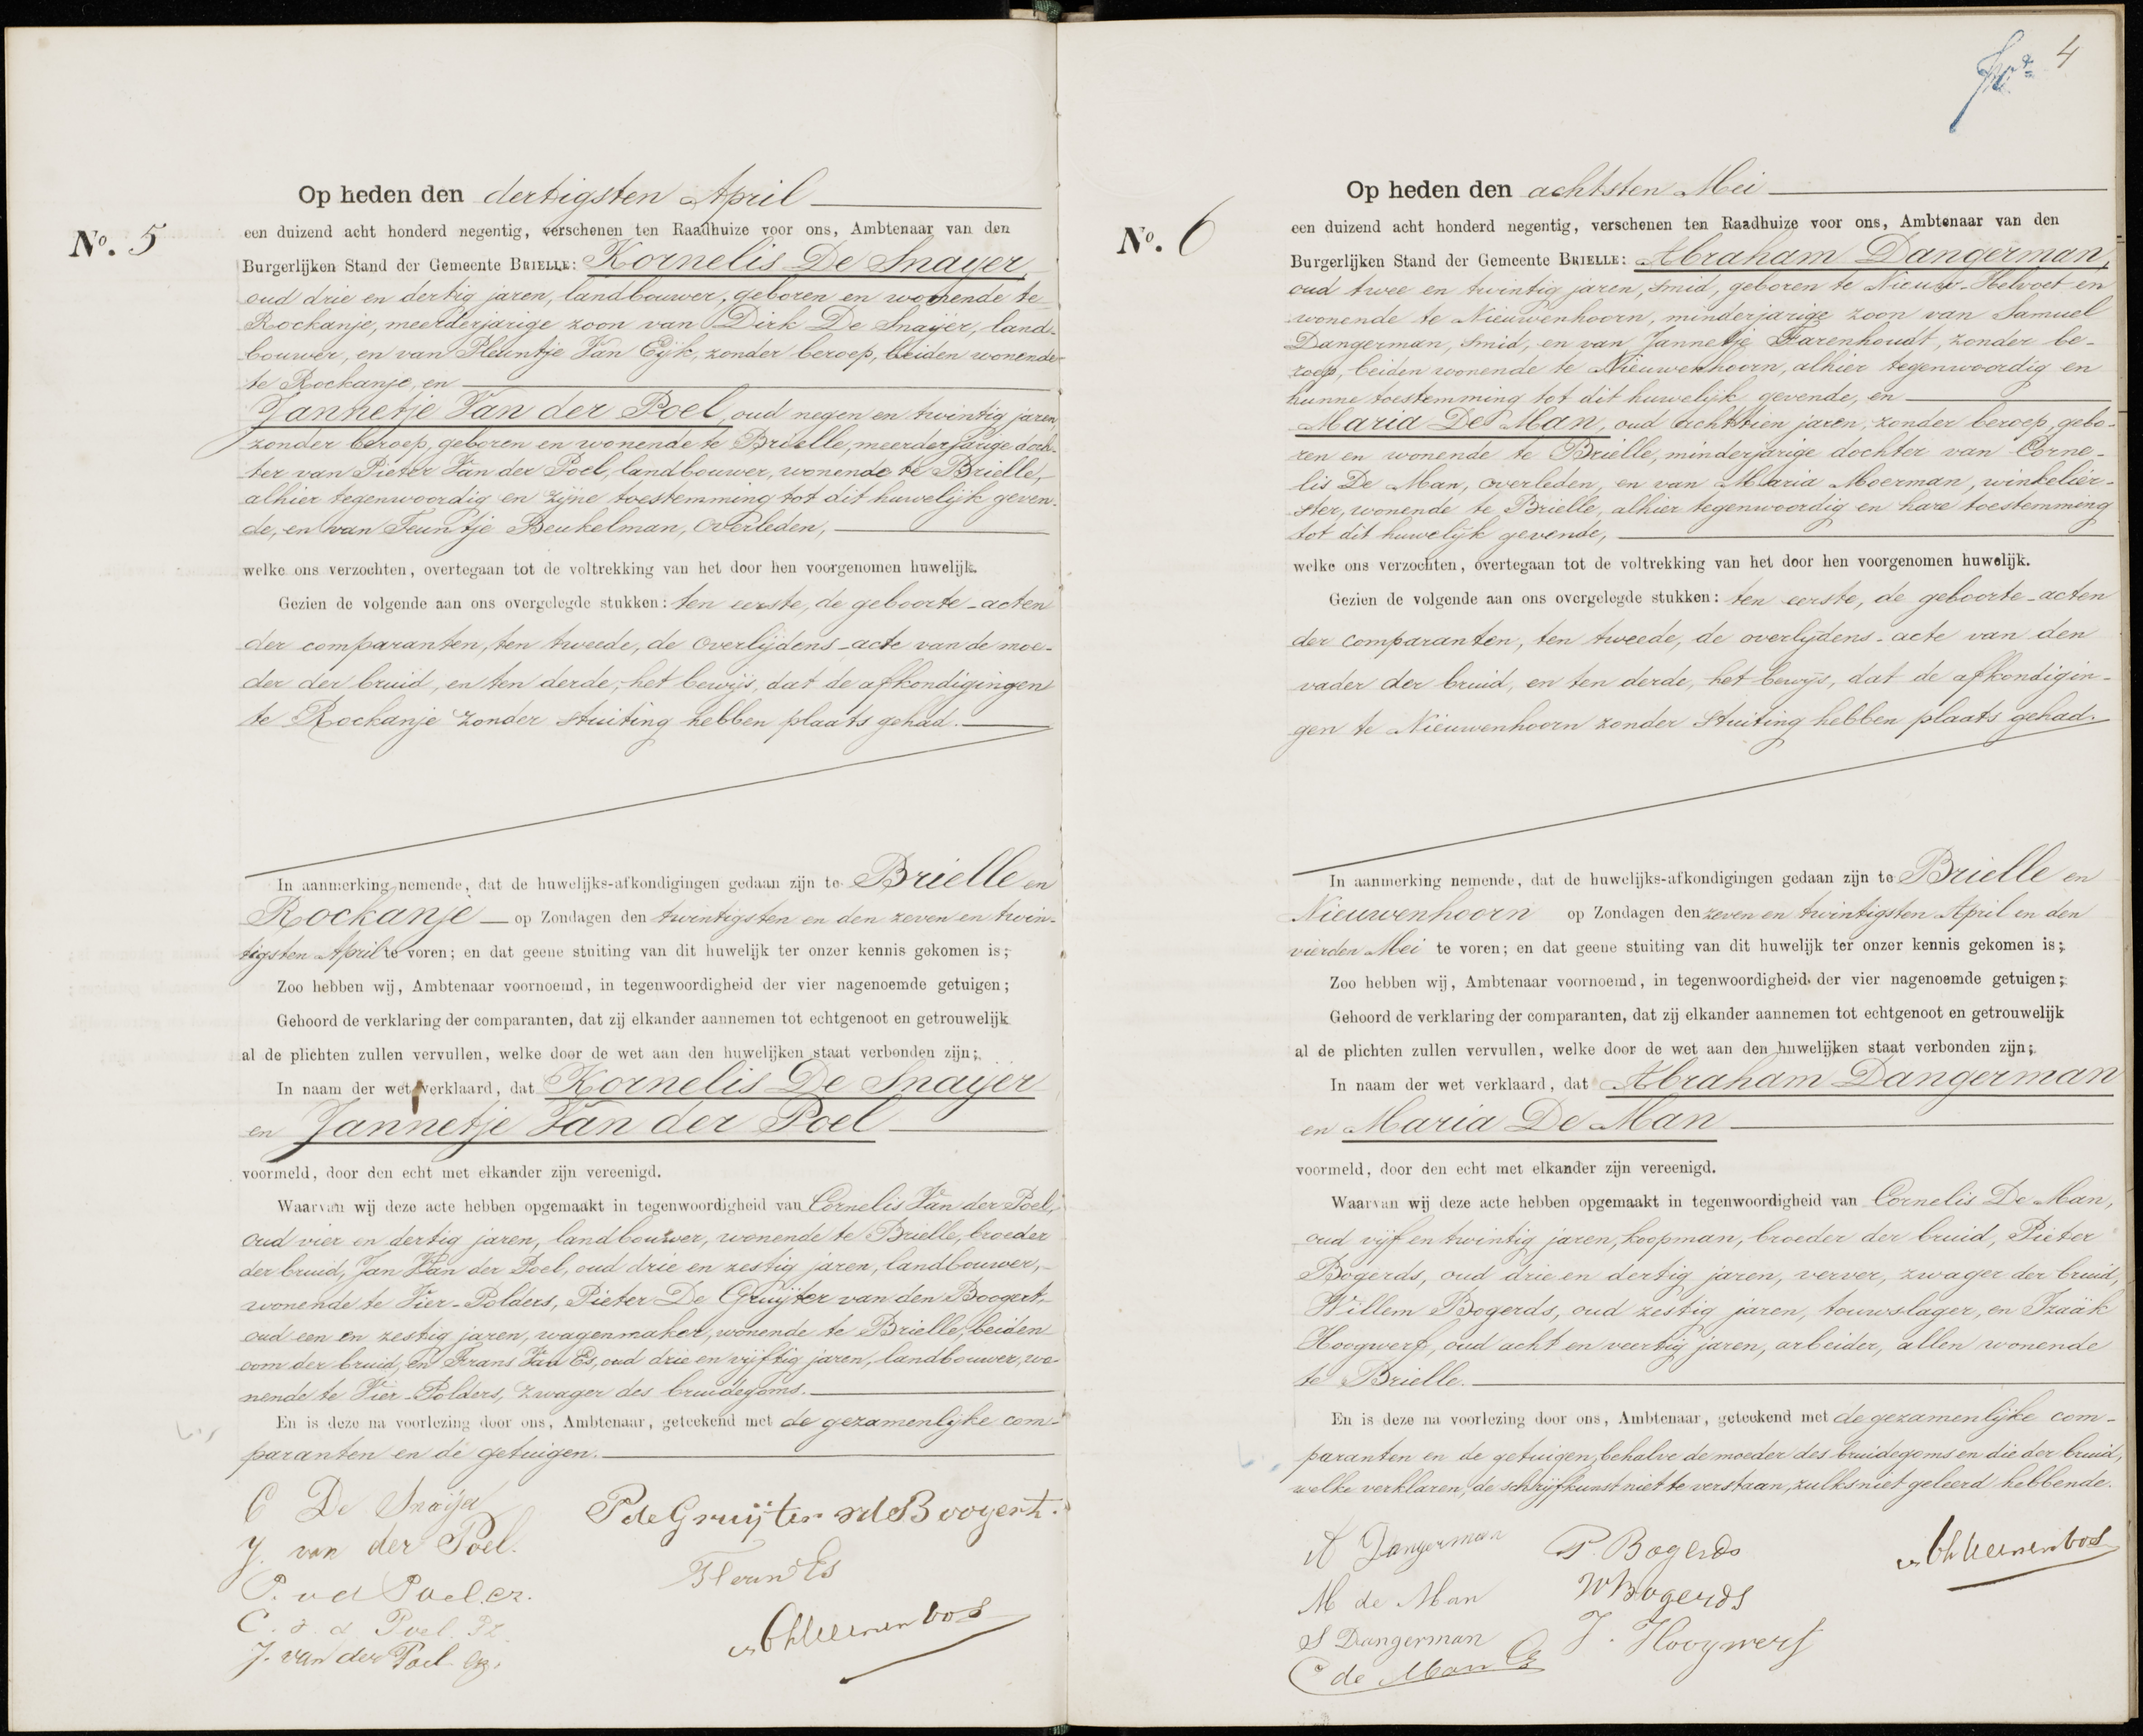 Nº. 5
Op heden den dertigsten April
een duizend acht honderd negentig, verschenen ten Raadhuize voor ons, Ambtenaar van den
Burgerlijken Stand der Gemeente BRIELLE: Kornelis De Snayer,
oud drie en dertig jaren, landbouwer, geboren en wonende te
Rockanje, meerderjarige zoon van Dirk De Snayer, land-
bouwer, en van Pleuntje Van Eijk, zonder beroep, beiden wonende
te Rockanje, en
Jannetje Van der Poel, oud negen en twintig jaren,
zonder beroep, geboren en wonende te Brielle, meerderjarige doch-
ter van Pieter Van der Poel, landbouwer, wonende te Brielle,
alhier tegenwoordig en zijne toestemming tot dit huwelijk geven-
de, en van Teuntje Beukelman, overleden,
welke ons verzochten, overtegaan tot de voltrekking van het door hen voorgenomen huwelijk.
Gezien de volgende aan ons overgelegde stukken: ten eerste, de geboorte-acten
der comparanten, ten tweede, de overlijdens-acte van de moe-
der der bruid, en ten derde, het bewijs, dat de afkondigingen
te Rockanje zonder stuiting hebben plaats gehad.
In aanmerking nemende, dat de huwelijks-afkondigingen gedaan zijn te Brielle en
Rockanje op Zondagen den twintigsten en den zeven en twin-
tigsten April te voren; en dat geene stuiting van dit huwelijk ter onzer kennis gekomen is;
Zoo hebben wij, Ambtenaar voornoemd, in tegenwoordigheid der vier nagenoemde getuigen;
Gehoord de verklaring der comparanten, dat zij elkander aannemen tot echtgenoot en getrouwelijk
al de plichten zullen vervullen, welke door de wet aan den huwelijken staat verbonden zijn;
In naam der wet verklaard, dat Kornelis De Snayer
en Jannetje Van der Poel
voormeld, door den echt met elkander zijn vereenigd.
Waarvan wij deze acte hebben opgemaakt in tegenwoordigheid van Cornelis Van der Poel,
oud vier en dertig jaren, landbouwer, wonende te Brielle, broeder
der bruid, Jan Van der Poel, oud drie en zestig jaren, landbouwer,
wonende te Vier-Polders, Pieter De Gruijter van den Boogert,
oud een en zestig jaren, wagenmaker, wonende te Brielle, beiden
oom der bruid, en Frans Van Es, oud drie en vijftig jaren, landbouwer, wo-
nende te Vier-Polders, zwager des bruidegoms.
En is deze na voorlezing door ons, Ambtenaar, geteekend met de gezamenlijke com-
paranten en de getuigen.
C De Snaijer
J. van der Poel.
P. v d Poel. cz.
C. v. d. Poel. Pz.
J. van der Poel Cz.
P de Gruijter vd Boogert.
F van Es
4
Nº. 6
Op heden den achtsten Mei
een duizend acht honderd negentig, verschenen ten Raadhuize voor ons, Ambtenaar van den
Burgerlijken Stand der Gemeente BRIELLE: Abraham Dangerman,
oud twee en twintig jaren, smid, geboren te Nieuw-Helvoet en
wonende te Nieuwenhoorn, minderjarige zoon van Samuel
Dangerman, smid, en van Jannetje Farenhoudt, zonder be-
roep, beiden wonende te Nieuwenhoorn, alhier tegenwoordig en
hunne toestemming tot dit huwelijk gevende, en
Maria De Man, oud achttien jaren, zonder beroep, gebo-
ren en wonende te Brielle, minderjarige dochter van Corne-
lis De Man, overleden, en van Maria Moerman, winkelier-
ster, wonende te Brielle, alhier tegenwoordig en hare toestemming
tot dit huwelijk gevende,
welke ons verzochten, overtegaan tot de voltrekking van het door hen voorgenomen huwelijk.
Gezien de volgende aan ons overgelegde stukken: ten eerste, de geboorte-acten
der comparanten, ten tweede, de overlijdens-acte van den
vader der bruid, en ten derde, het bewijs, dat de afkondigin-
gen te Nieuwenhoorn zonder stuiting hebben plaats gehad.
In aanmerking nemende, dat de huwelijks-afkondigingen gedaan zijn te Brielle en
Nieuwenhoorn op Zondagen den zeven en twintigsten April en den
vierden Mei te voren; en dat geene stuiting van dit huwelijk ter onzer kennis gekomen is;
Zoo hebben wij, Ambtenaar voornoemd, in tegenwoordigheid der vier nagenoemde getuigen;
Gehoord de verklaring der comparanten, dat zij elkander aannemen tot echtgenoot en getrouwelijk
al de plichten zullen vervullen, welke door de wet aan den huwelijken staat verbonden zijn;
In naam der wet verklaard, dat Abraham Dangerman
en Maria De Man
voormeld, door den echt met elkander zijn vereenigd.
Waarvan wij deze acte hebben opgemaakt in tegenwoordigheid van Cornelis De Man,
oud vijf en twintig jaren, koopman, broeder der bruid, Pieter
Bogerds, oud drie en dertig jaren, verver, zwager der bruid,
Willem Bogerds, oud zestig jaren, touwslager, en Izaäk
Hoogwerf, oud acht en veertig jaren, arbeider, allen wonende
te Brielle.
En is deze na voorlezing door ons, Ambtenaar, geteekend met de gezamenlijke com-
paranten en de getuigen, behalve de moeder des bruidegoms en die der bruid,
welke verklaren, de schrijfkunst niet te verstaan, zulks niet geleerd hebbende.
A Dangerman
M de Man
S Dangerman
C de Man Cz
P. Bogerds
W Bogerds
J. Hoogwerf